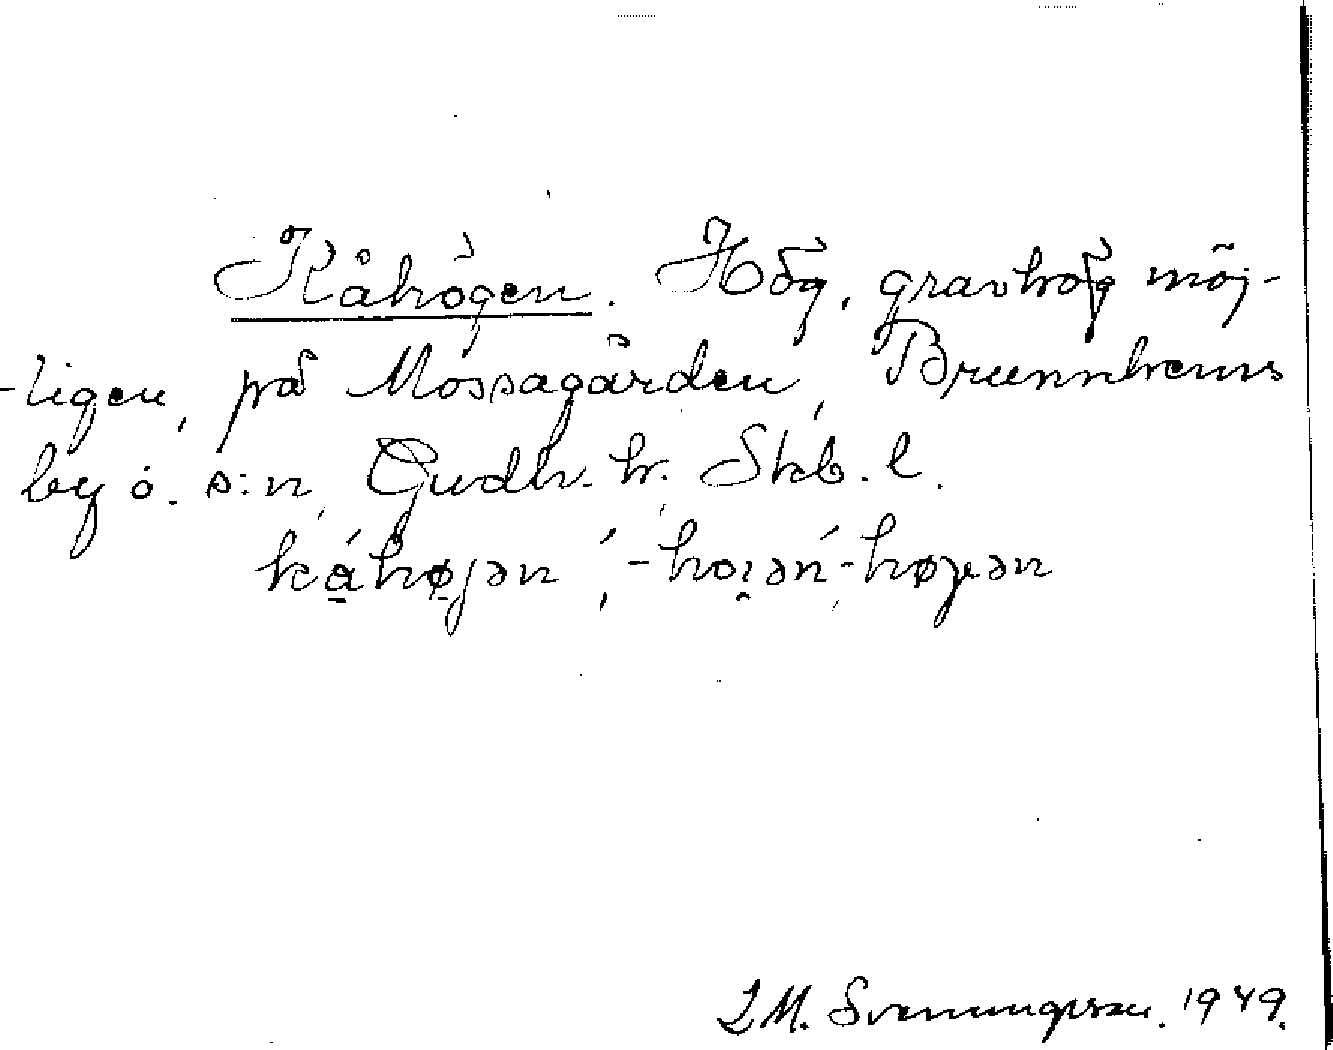 Kåhögen. Hög, gravhög möj-
-ligen, på Mossagården, Brunnhems
by o. s:n, Gudh. h. Skb. l.
kåhøjən, -hoiən, -højən
J.M. Svenungsson. 1949.